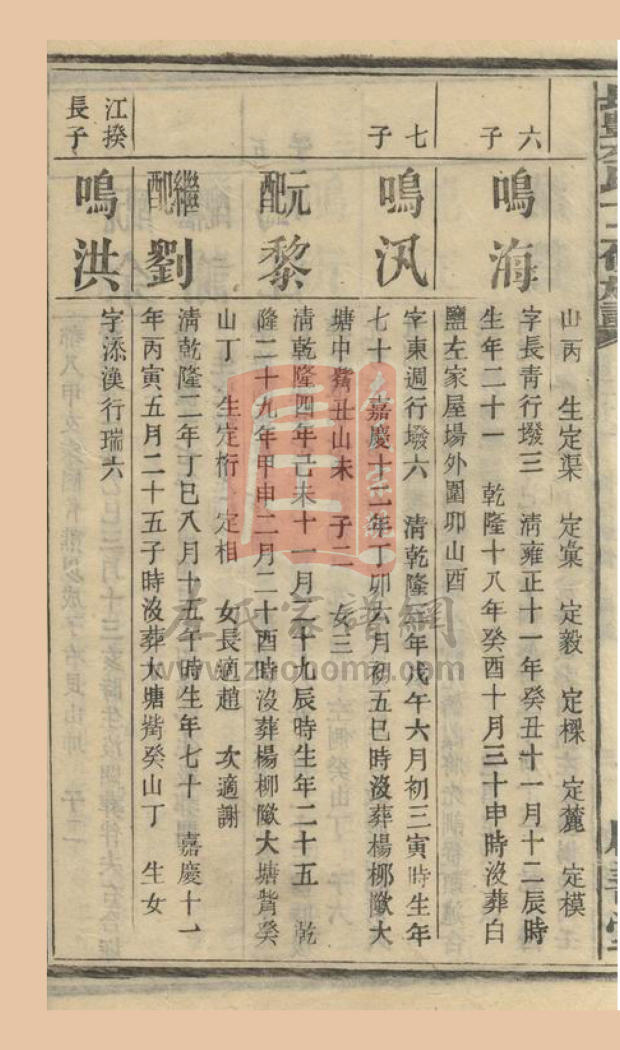 山丙　生定渠　定彙　定毅　定樑　定麓　定模
六子
鳴海
字長青行墢三　清雍正十一年癸丑十一月十二辰時
生年二十一　乾隆十八年癸酉十月三十申時沒葬白
鹽左家屋場外圍卯山酉
七子
鳴汎
字東週行墢六　清乾隆三年戊午六月初三寅時生年
七十　嘉慶十二年丁卯六月初五巳時沒葬楊柳㘕大
塘中觜丑山未　子二　女三
元配
黎
清乾隆四年己未十一月二十九辰時生年二十五　乾
隆二十九年甲申二月二十酉時沒葬楊柳㘕大塘觜癸
山丁　生定桁　定相　女長適趙　次適謝
繼配
劉
清乾隆二年丁巳八月十五午時生年七十　嘉慶十一
年丙寅五月二十五子時沒葬大塘觜癸山丁　生女
江揆長子
鳴洪
字添渙行瑞六
左氏宗譜網
www.zuoooma.com